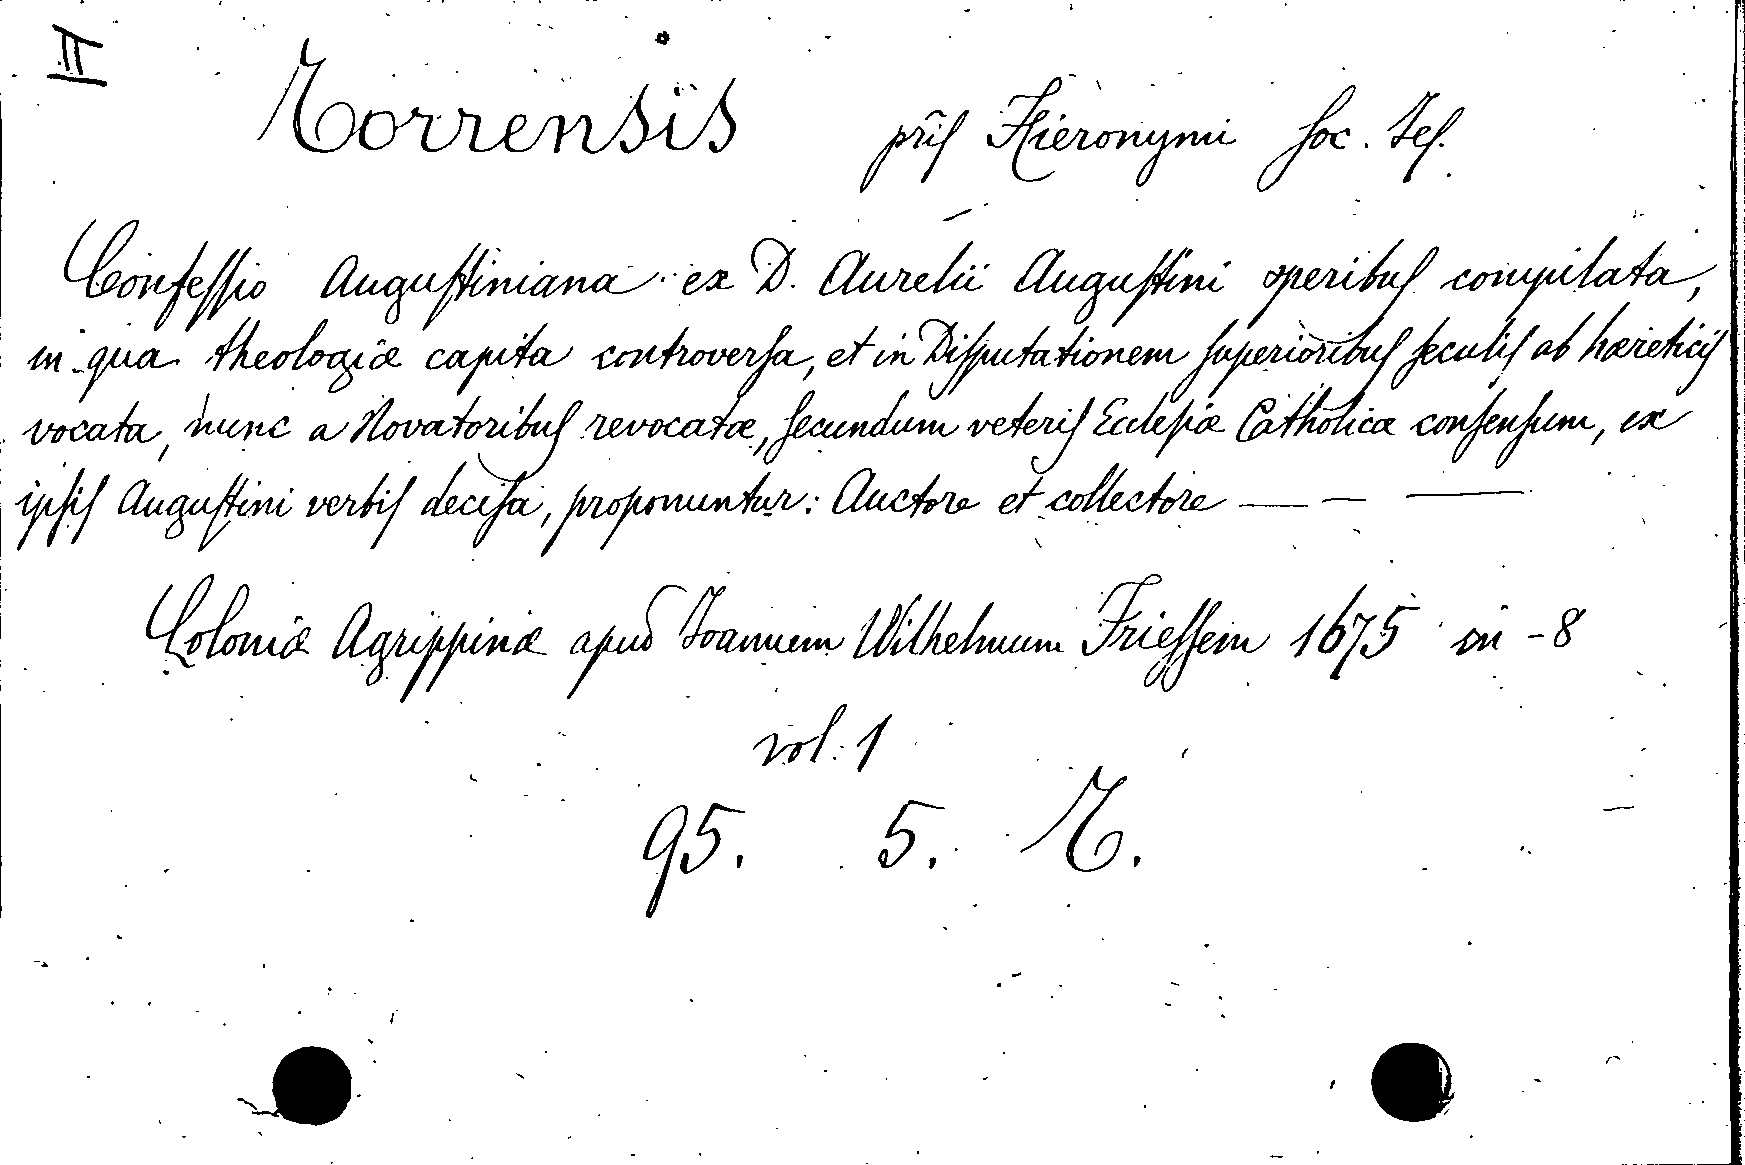 II
Torrensis prĩs Hieronymi Soc. Jes.
Confessio Augustiniana ex D. Aurelii Augustini operibus compilata,
in qua theologiæ capita controversa, et in Disputationem superioribus seculis ab hæreticis
vocata, nunc a Novatoribus revocatæ, secundum veteris Ecclesiæ Catholicæ consensum, ex
ipsis Augustini verbis decisa, proponuntur: Auctore et collectore — — —
Coloniæ Agrippinæ apud Joannem Wilhelmum Friessem 1675 in -8
vol. 1
95. 5. T.